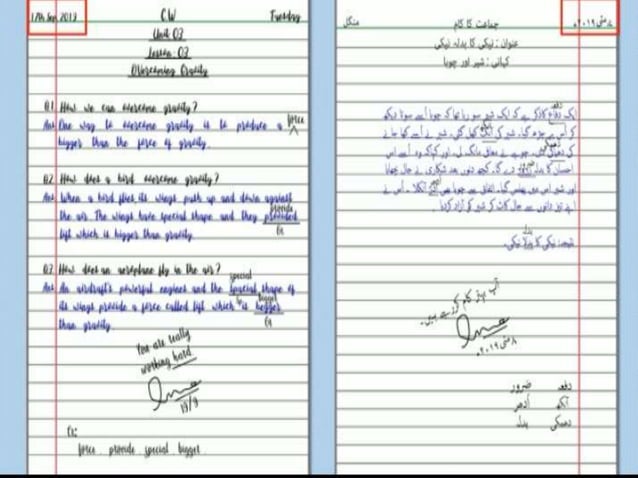 17th Sep 2013 C.W Tuesday
Unit 03
Lesson: 03
Overcoming Gravity
Q.1 How we can overcome gravity?
Ans One way to overcome gravity is to produce a force
bigger than the force of gravity.
Q.2 How does a bird overcome gravity?
Ans When a bird flies, its wings push up and down against
the air. The wings have special shape and they provided
provide
lift which is bigger than gravity.
Q.3 How does an aeroplane fly in the air?
special
its wings provide a force called lift which is
bigger
than gravity.
You are really
working hard.
19/9
force provide special bigger
منگل جماعت کا کام ۸ مئی ۲۰۱۹ء
عنوان: نیکی کا بدلہ نیکی
کہانی: شیر اور چوہا
دفعہ
ایک کا ذکر ہے کہ ایک شیر سو رہا تھا کہ چوہا اُسے سوتا دیکھ
کر اُس پر چڑھ گیا۔ شیر کی آنکھ کھل گئی۔ شیر نے اُسے کھا جانے
کی دھمکی دی۔ چوہے نے معافی مانگ لی۔ اور کہا کہ وہ اُسے اس
احسان کا بدلہ ضرور دے گا۔ کچھ دنوں بعد شکاری نے جال بچھایا
اور شیر اس میں پھنس گیا۔ اتفاق سے چوہا بھی اُدھر آ نکلا۔ اُس نے
اپنے تیز دانتوں سے جال کاٹ کر شیر کو آزاد کر دیا۔
بدلہ
نتیجہ: نیکی کا نیکی۔
آپ بہتر کام کر رہے ہیں۔
۸ مئی ۲۰۱۹ء
دفعہ ضرور
آنکھ اُدھر
دھمکی بدلہ